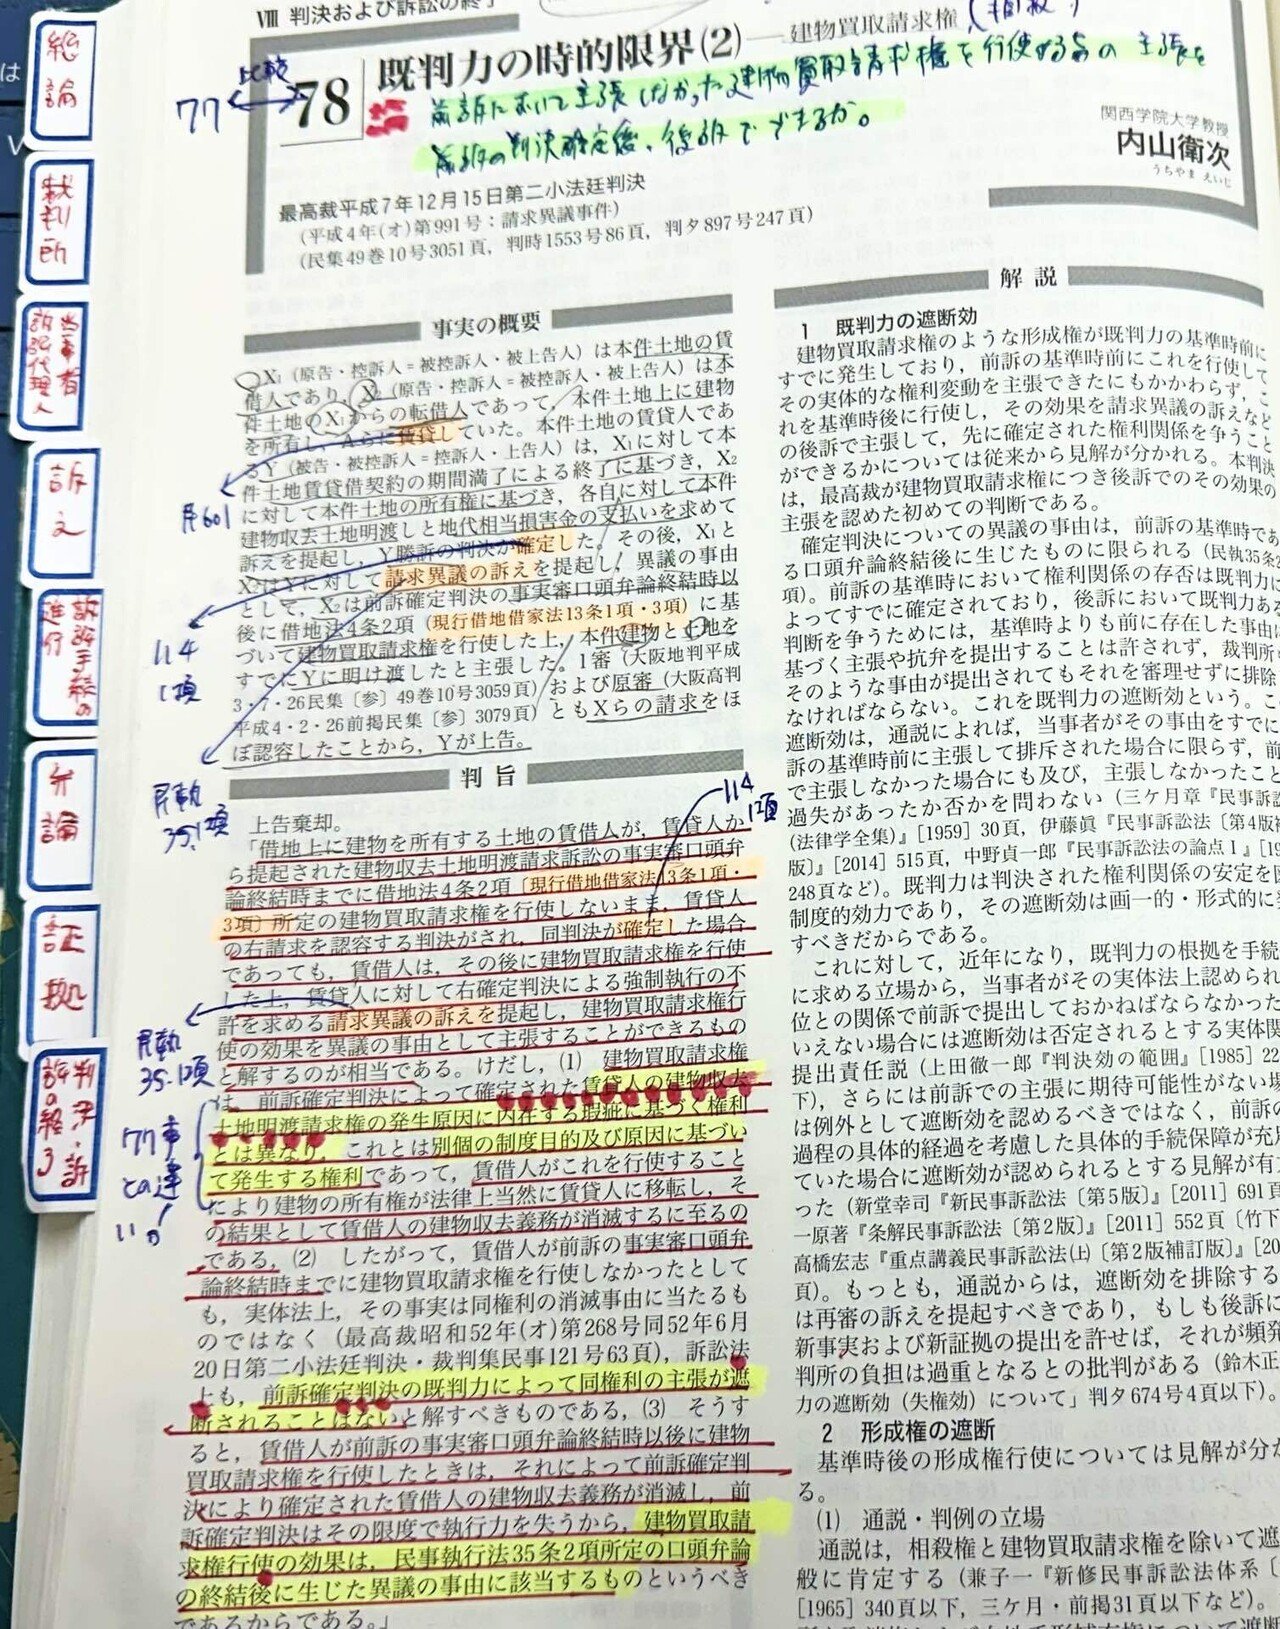 VIII 判決および訴訟の終了
比較
77
78
既判力の時的限界(2)――建物買取請求権
(相殺)
前訴において主張しなかった建物買取請求権を行使する旨の主張を
前訴の判決確定後、後訴でできるか。
関西学院大学教授
内山衛次
うちやま えいじ
最高裁平成7年12月15日第二小法廷判決
(平成4年(オ)第991号:請求異議事件)
(民集49巻10号3051頁,判時1553号86頁,判タ897号247頁)
総論
裁判所
当事者
訴訟代理人
訴え
訴訟手続の
進行
弁論
証拠
判決・訴
訟の終了
事実の概要
X₁(原告・控訴人=被控訴人・被上告人)は本件土地の賃
借人であり,X₂(原告・控訴人=被控訴人・被上告人)は本
件土地のX₁からの転借人であって,本件土地上に建物
を所有し,Aらに賃貸していた。本件土地の賃貸人であ
るY(被告・被控訴人=控訴人・上告人)は,X₁に対して本
件土地賃貸借契約の期間満了による終了に基づき,X₂
に対して本件土地の所有権に基づき,各自に対して本件
建物収去土地明渡しと地代相当損害金の支払いを求めて
訴えを提起し,Y勝訴の判決が確定した。その後,X₁と
X₂はYに対して請求異議の訴えを提起し,異議の事由
として,X₂は前訴確定判決の事実審口頭弁論終結時以
後に借地法4条2項(現行借地借家法13条1項・3項)に基
づいて建物買取請求権を行使した上,本件建物と土地を
すでにYに明け渡したと主張した。1審(大阪地判平成
3・7・26民集〔参〕49巻10号3059頁)および原審(大阪高判
平成4・2・26前掲民集〔参〕3079頁)ともXらの請求をほ
ぼ認容したことから,Yが上告。
民601
114
1項
民執
35.1項
判旨
114
1項
上告棄却。
「借地上に建物を所有する土地の賃借人が,賃貸人か
ら提起された建物収去土地明渡請求訴訟の事実審口頭弁
論終結時までに借地法4条2項〔現行借地借家法13条1項・
3項〕所定の建物買取請求権を行使しないまま,賃貸人
の右請求を認容する判決がされ,同判決が確定した場合
であっても,賃借人は,その後に建物買取請求権を行使
した上,賃貸人に対して右確定判決による強制執行の不
許を求める請求異議の訴えを提起し,建物買取請求権行
使の効果を異議の事由として主張することができるもの
と解するのが相当である。けだし,(1) 建物買取請求権
は,前訴確定判決によって確定された賃貸人の建物収去
土地明渡請求権の発生原因に内在する瑕疵に基づく権利
とは異なり,これとは別個の制度目的及び原因に基づい
て発生する権利であって,賃借人がこれを行使すること
により建物の所有権が法律上当然に賃貸人に移転し,そ
の結果として賃借人の建物収去義務が消滅するに至るの
である,(2) したがって,賃借人が前訴の事実審口頭弁
論終結時までに建物買取請求権を行使しなかったとして
も,実体法上,その事実は同権利の消滅事由に当たるも
のではなく(最高裁昭和52年(オ)第268号同52年6月
20日第二小法廷判決・裁判集民事121号63頁),訴訟法
上も,前訴確定判決の既判力によって同権利の主張が遮
断されることはないと解すべきものである,(3) そうす
ると,賃借人が前訴の事実審口頭弁論終結時以後に建物
買取請求権を行使したときは,それによって前訴確定判
決により確定された賃借人の建物収去義務が消滅し,前
訴確定判決はその限度で執行力を失うから,建物買取請
求権行使の効果は,民事執行法35条2項所定の口頭弁論
の終結後に生じた異議の事由に該当するものというべき
であるからである。」
民執
35.1項
77事
との違
い!
解説
1 既判力の遮断効
建物買取請求権のような形成権が既判力の基準時前に
すでに発生しており,前訴の基準時前にこれを行使して
その実体的な権利変動を主張できたにもかかわらず,こ
れを基準時後に行使し,その効果を請求異議の訴えなど
の後訴で主張して,先に確定された権利関係を争うこと
ができるかについては従来から見解が分かれる。本判決
は,最高裁が建物買取請求権につき後訴でのその効果の
主張を認めた初めての判断である。
確定判決についての異議の事由は,前訴の基準時であ
る口頭弁論終結後に生じたものに限られる(民執35条2
項)。前訴の基準時において権利関係の存否は既判力に
よってすでに確定されており,後訴において既判力ある
判断を争うためには,基準時よりも前に存在した事由に
基づく主張や抗弁を提出することは許されず,裁判所も
そのような事由が提出されてもそれを審理せずに排除し
なければならない。これを既判力の遮断効という。こ
遮断効は,通説によれば,当事者がその事由をすでに
訴の基準時前に主張して排斥された場合に限らず,前
で主張しなかった場合にも及び,主張しなかったこと
過失があったか否かを問わない(三ケ月章『民事訴訟
(法律学全集)』[1959]30頁,伊藤眞『民事訴訟法〔第4版補
版〕』[2014]515頁,中野貞一郎『民事訴訟法の論点Ⅰ』[19
248頁など)。既判力は判決された権利関係の安定を図
制度的効力であり,その遮断効は画一的・形式的に
すべきだからである。
これに対して,近年になり,既判力の根拠を手続
に求める立場から,当事者がその実体法上認められ
位との関係で前訴で提出しておかねばならなかった
いえない場合には遮断効は否定されるとする実体関
提出責任説(上田徹一郎『判決効の範囲』[1985]22
下),さらには前訴での主張に期待可能性がない場
は例外として遮断効を認めるべきではなく,前訴の
過程の具体的経過を考慮した具体的手続保障が充足
ていた場合に遮断効が認められるとする見解が有力
った(新堂幸司『新民事訴訟法〔第5版〕』[2011]691頁
一原著『条解民事訴訟法〔第2版〕』[2011]552頁〔竹下
高橋宏志『重点講義民事訴訟法(上)〔第2版補訂版〕』[20
頁)。もっとも,通説からは,遮断効を排除する
は再審の訴えを提起すべきであり,もしも後訴に
新事実および新証拠の提出を許せば,それが頻発
判所の負担は過重となるとの批判がある(鈴木正
力の遮断効(失権効)について」判タ674号4頁以下)。
2 形成権の遮断
基準時後の形成権行使については見解が分か
る。
(1) 通説・判例の立場
通説は,相殺権と建物買取請求権を除いて遮
般に肯定する(兼子一『新修民事訴訟法体系〔
[1965]340頁以下,三ケ月・前掲31頁以下など)。